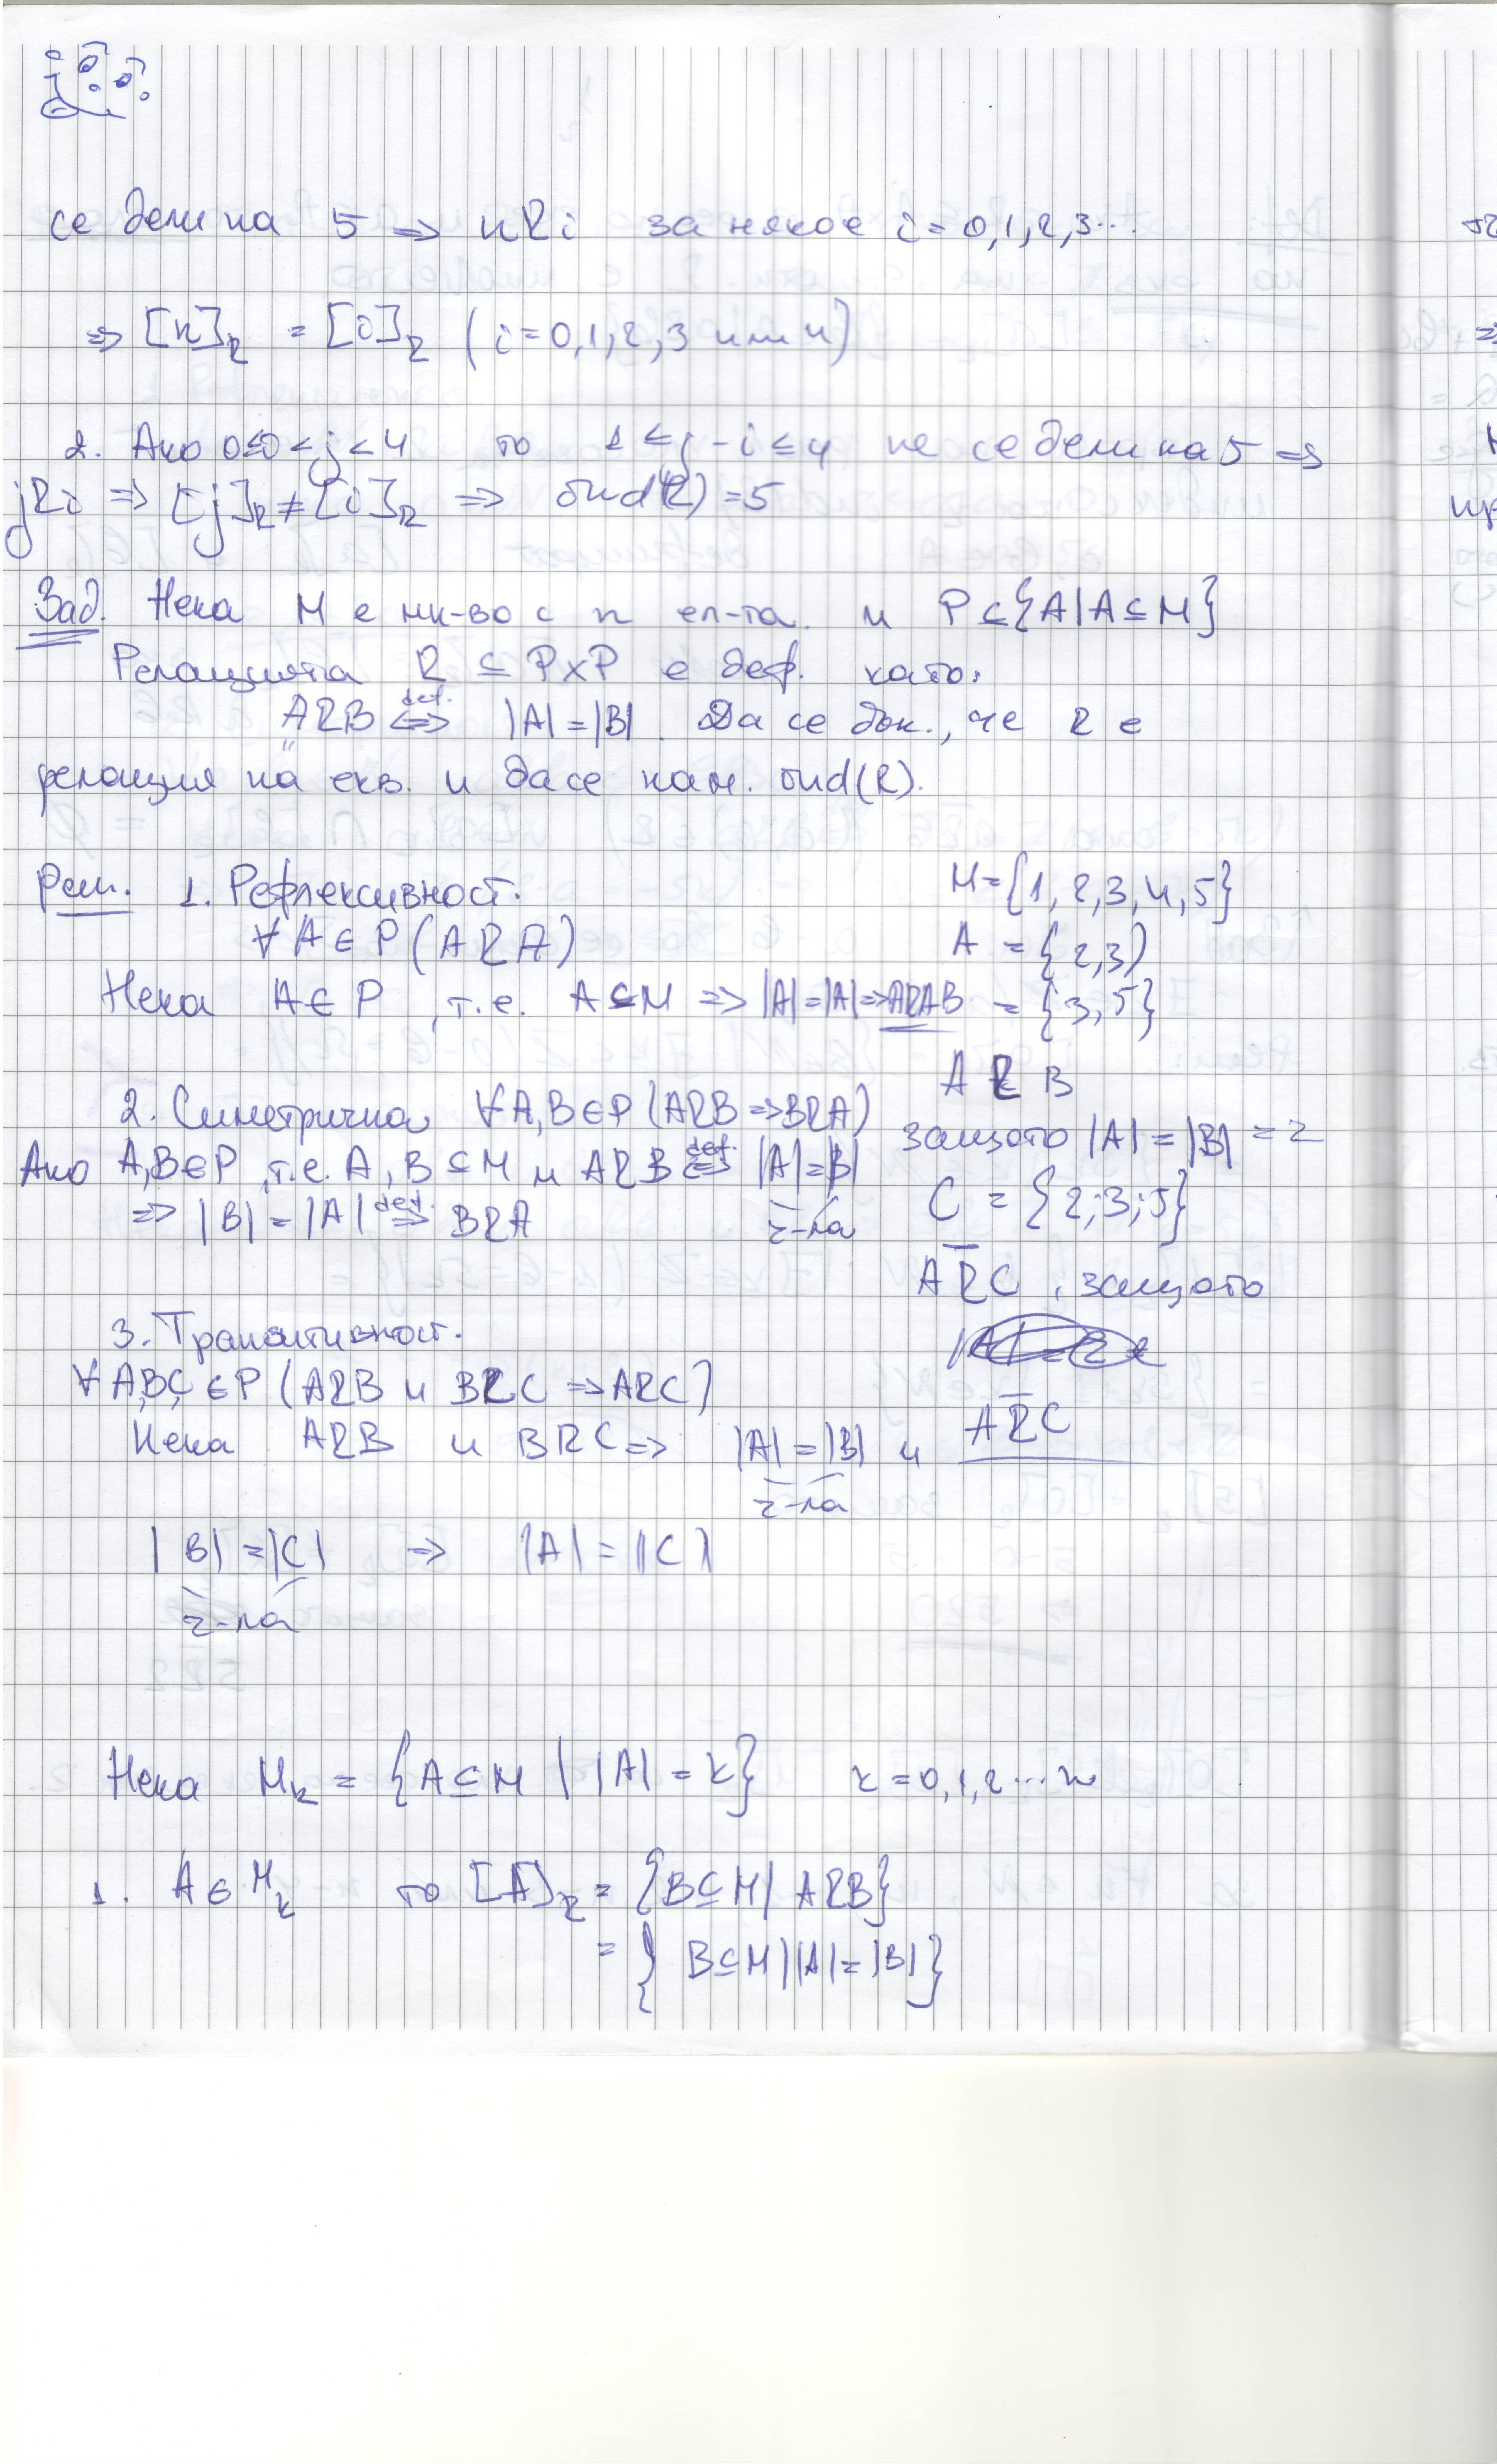 се дели на 5 => nRi за някое i = 0,1,2,3...
=> [n]R = [i]R (i=0,1,2,3 или 4)
2. Ако 0≤i<j<4 то 1≤j-i≤4 не се дели на 5 =>
jRi => [j]R ≠ [i]R => ind(R) = 5
Зад. Нека M е мн-во с n ел-та. и P ⊆ {A | A ⊆ M}
Релацията R ⊆ P×P е деф. като:
ARB <=> def. |A| = |B|. Да се док., че R е
релация на екв. и да се нам. ind(R).
Реш. 1. Рефлексивност.
∀A∈P (ARA)
Нека A∈P, т.е. A⊆M => |A| = |A| => ARA
2. Симетрична ∀A,B∈P (ARB => BRA)
Ако A,B∈P, т.е. A,B⊆M и ARB <=> def. |A| = |B|
=> |B| = |A| def. => BRA
3. Транзитивност.
∀A,B,C∈P (ARB и BRC => ARC)
Нека ARB и BRC => |A| = |B| и
|B| = |C| => |A| = |C|
M = {1,2,3,4,5}
A = {2,3}
B = {3,5}
ARB
защото |A| = |B| = 2
C = {2;3;5}
AR̅C, защото
AR̅C
Нека Mk = {A⊆M | |A| = k} k = 0,1,2...n
1. A∈Mk то [A]R = {B⊆M | ARB}
= {B⊆M | |A| = |B|}